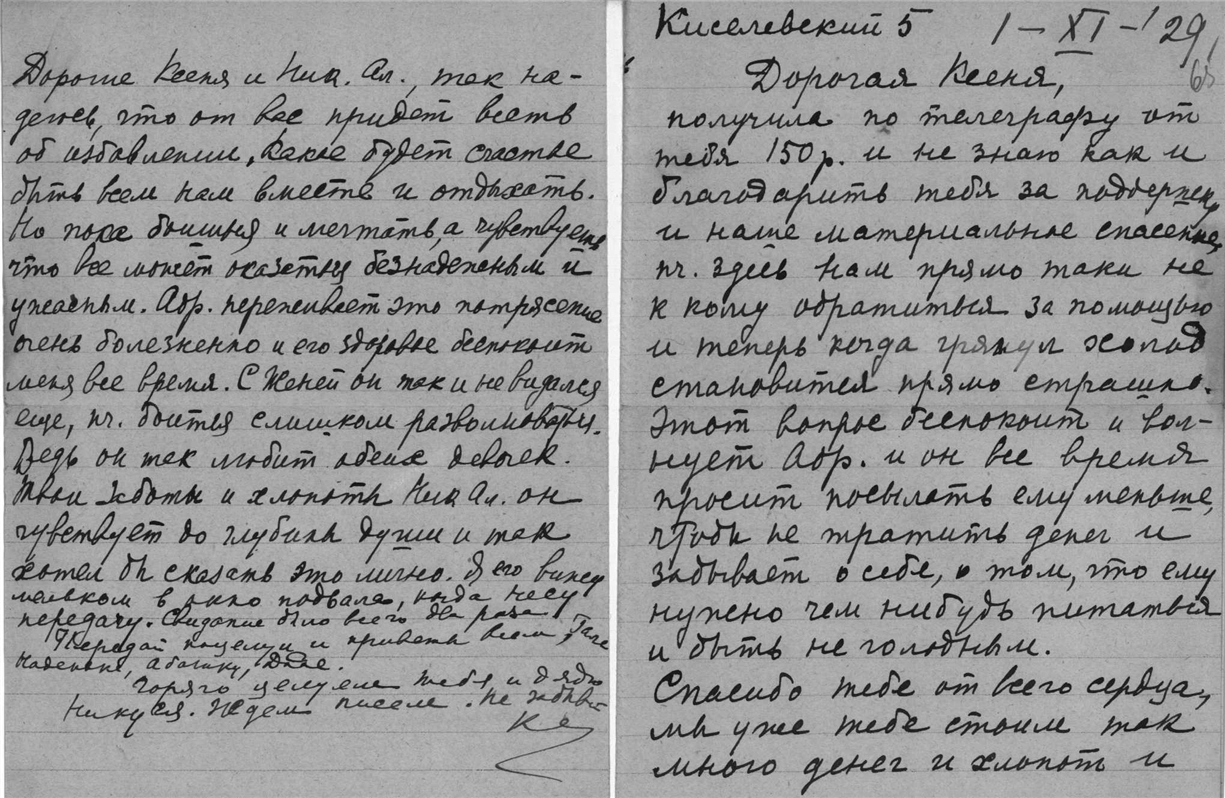 Дорогие Ксеня и Ник. Ал., так на-
деюсь, что от вас придет весть
об избавлении, какое будет счастье
быть всем нам вместе и отдыхать.
Но пока боишься и мечтать, а чувствуешь
что все может оказаться безнадежным и
ужасным. Абр. переживает это потрясение
очень болезненно и его здоровье беспокоит
меня все время. С Женей он так и не видался
еще, пч. боится слишком разволноваться.
Ведь он так любит обеих девочек.
Твои заботы и хлопоты Ник Ал. он
чувствует до глубины души и так
хотел бы сказать это лично. Я его вижу
мельком в окно подвала, когда несу
передачу. Свидание было всего два раза
Передай поцелуи и приветы всем, Тане
Наденьке,
Горячо целуем тебя и дядю
Никуся. Ждем писем. Не забывай
Киселевский 5 1 – XI – '29,
65
Дорогая Ксеня,
получила по телеграфу от
тебя 150 р. и не знаю как и
благодарить тебя за поддержку
и наше материальное спасение,
пч. здесь нам прямо таки не
к кому обратиться за помощью
и теперь когда грянул холод
становится прямо страшно.
Этот вопрос беспокоит и вол-
нует Абр. и он все время
просит посылать ему меньше,
чтобы не тратить денег и
забывает о себе, о том, что ему
нужно чем нибудь питаться
и быть не голодным.
Спасибо тебе от всего сердца,
мы уже тебе стоим так
много денег и хлопот и